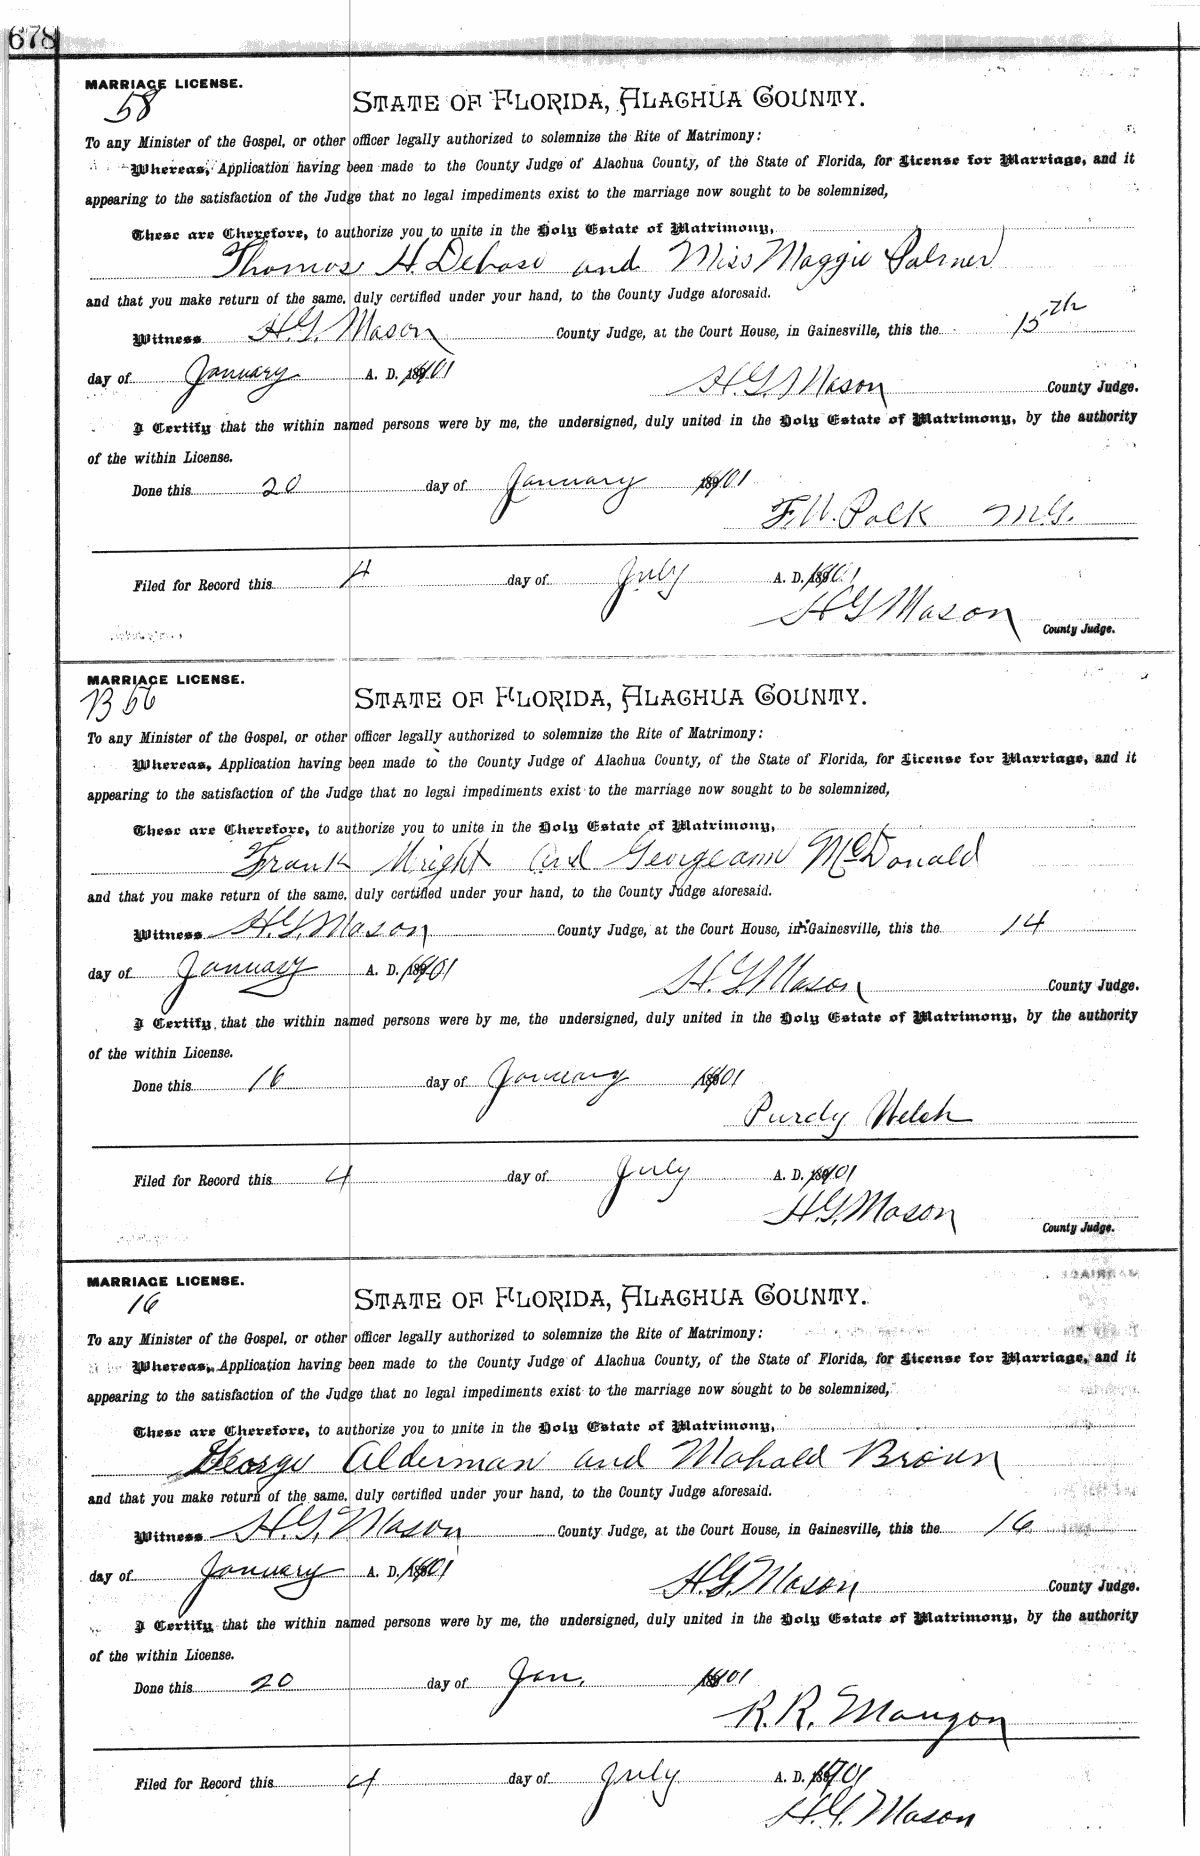 678
MARRIAGE LICENSE.
58
STATE OF FLORIDA, ALACHUA COUNTY.
To any Minister of the Gospel, or other officer legally authorized to solemnize the Rite of Matrimony:
Whereas, Application having been made to the County Judge of Alachua County, of the State of Florida, for License for Marriage, and it
appearing to the satisfaction of the Judge that no legal impediments exist to the marriage now sought to be solemnized,
These are Therefore, to authorize you to unite in the Holy Estate of Matrimony,
Thomas H. Debose and Miss Maggie Palmer
and that you make return of the same, duly certified under your hand, to the County Judge aforesaid.
Witness H.G. Mason County Judge, at the Court House, in Gainesville, this the 15th
day of January A. D. 1901 H.G. Mason County Judge.
I Certify that the within named persons were by me, the undersigned, duly united in the Holy Estate of Matrimony, by the authority
of the within License.
Done this 20 day of January 1901
F.W. Polk M.G.
Filed for Record this 4 day of July A. D. 1901
H G Mason
County Judge.
MARRIAGE LICENSE.
B 56
STATE OF FLORIDA, ALACHUA COUNTY.
To any Minister of the Gospel, or other officer legally authorized to solemnize the Rite of Matrimony:
Whereas, Application having been made to the County Judge of Alachua County, of the State of Florida, for License for Marriage, and it
appearing to the satisfaction of the Judge that no legal impediments exist to the marriage now sought to be solemnized,
These are Therefore, to authorize you to unite in the Holy Estate of Matrimony,
Frank Wright and Georgeann McDonald
and that you make return of the same, duly certified under your hand, to the County Judge aforesaid.
Witness H.G. Mason County Judge, at the Court House, in Gainesville, this the 14
day of January A. D. 1901 H.G. Mason County Judge.
I Certify that the within named persons were by me, the undersigned, duly united in the Holy Estate of Matrimony, by the authority
of the within License.
Done this 16 day of January 1901
Purdy Welch
Filed for Record this 4 day of July A. D. 1901
H.G. Mason
County Judge.
MARRIAGE LICENSE.
16
STATE OF FLORIDA, ALACHUA COUNTY.
To any Minister of the Gospel, or other officer legally authorized to solemnize the Rite of Matrimony:
Whereas, Application having been made to the County Judge of Alachua County, of the State of Florida, for License for Marriage, and it
appearing to the satisfaction of the Judge that no legal impediments exist to the marriage now sought to be solemnized,
These are Therefore, to authorize you to unite in the Holy Estate of Matrimony,
George Alderman and Mahald Brown
and that you make return of the same, duly certified under your hand, to the County Judge aforesaid.
Witness H.G. Mason County Judge, at the Court House, in Gainesville, this the 16
day of January A. D. 1901 H.G. Mason County Judge.
I Certify that the within named persons were by me, the undersigned, duly united in the Holy Estate of Matrimony, by the authority
of the within License.
Done this 20 day of Jan. 1901
R. R. Maugon
Filed for Record this 4 day of July A. D. 1901
H.G. Mason